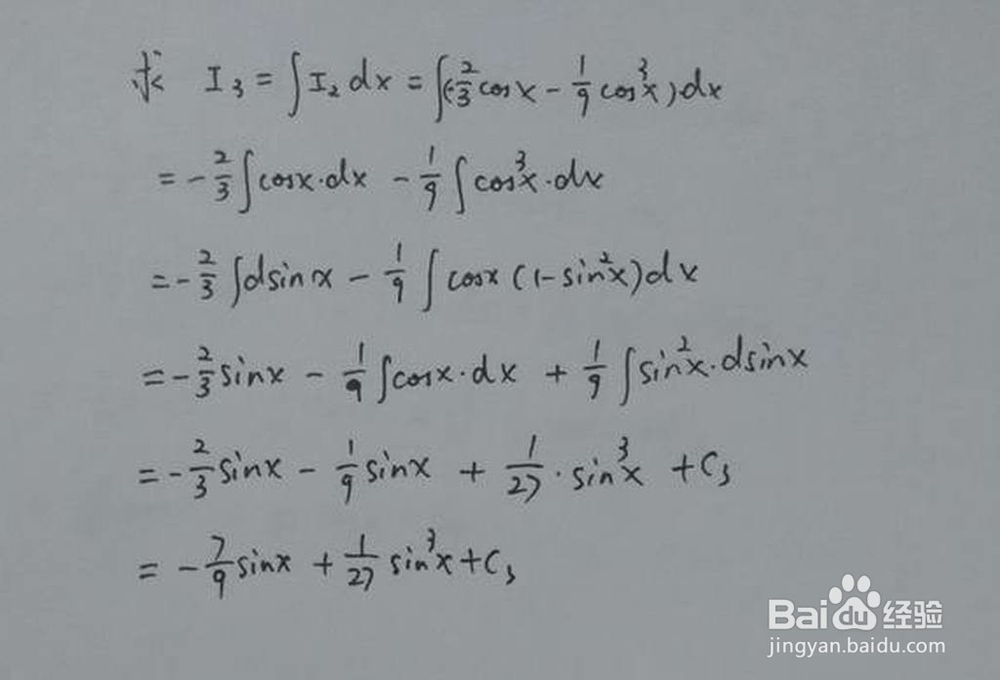 求 I₃ = ∫I₂dx = ∫(-2/3 cosx - 1/9 cos³x)dx
= -2/3 ∫cosx·dx - 1/9 ∫cos³x·dx
= -2/3 ∫dsinx - 1/9 ∫cosx(1-sin²x)dx
= -2/3 sinx - 1/9 ∫cosx·dx + 1/9 ∫sin²x·dsinx
= -2/3 sinx - 1/9 sinx + 1/27 · sin³x + C₃
= -7/9 sinx + 1/27 sin³x + C₃
Baidu经验
jingyan.baidu.com